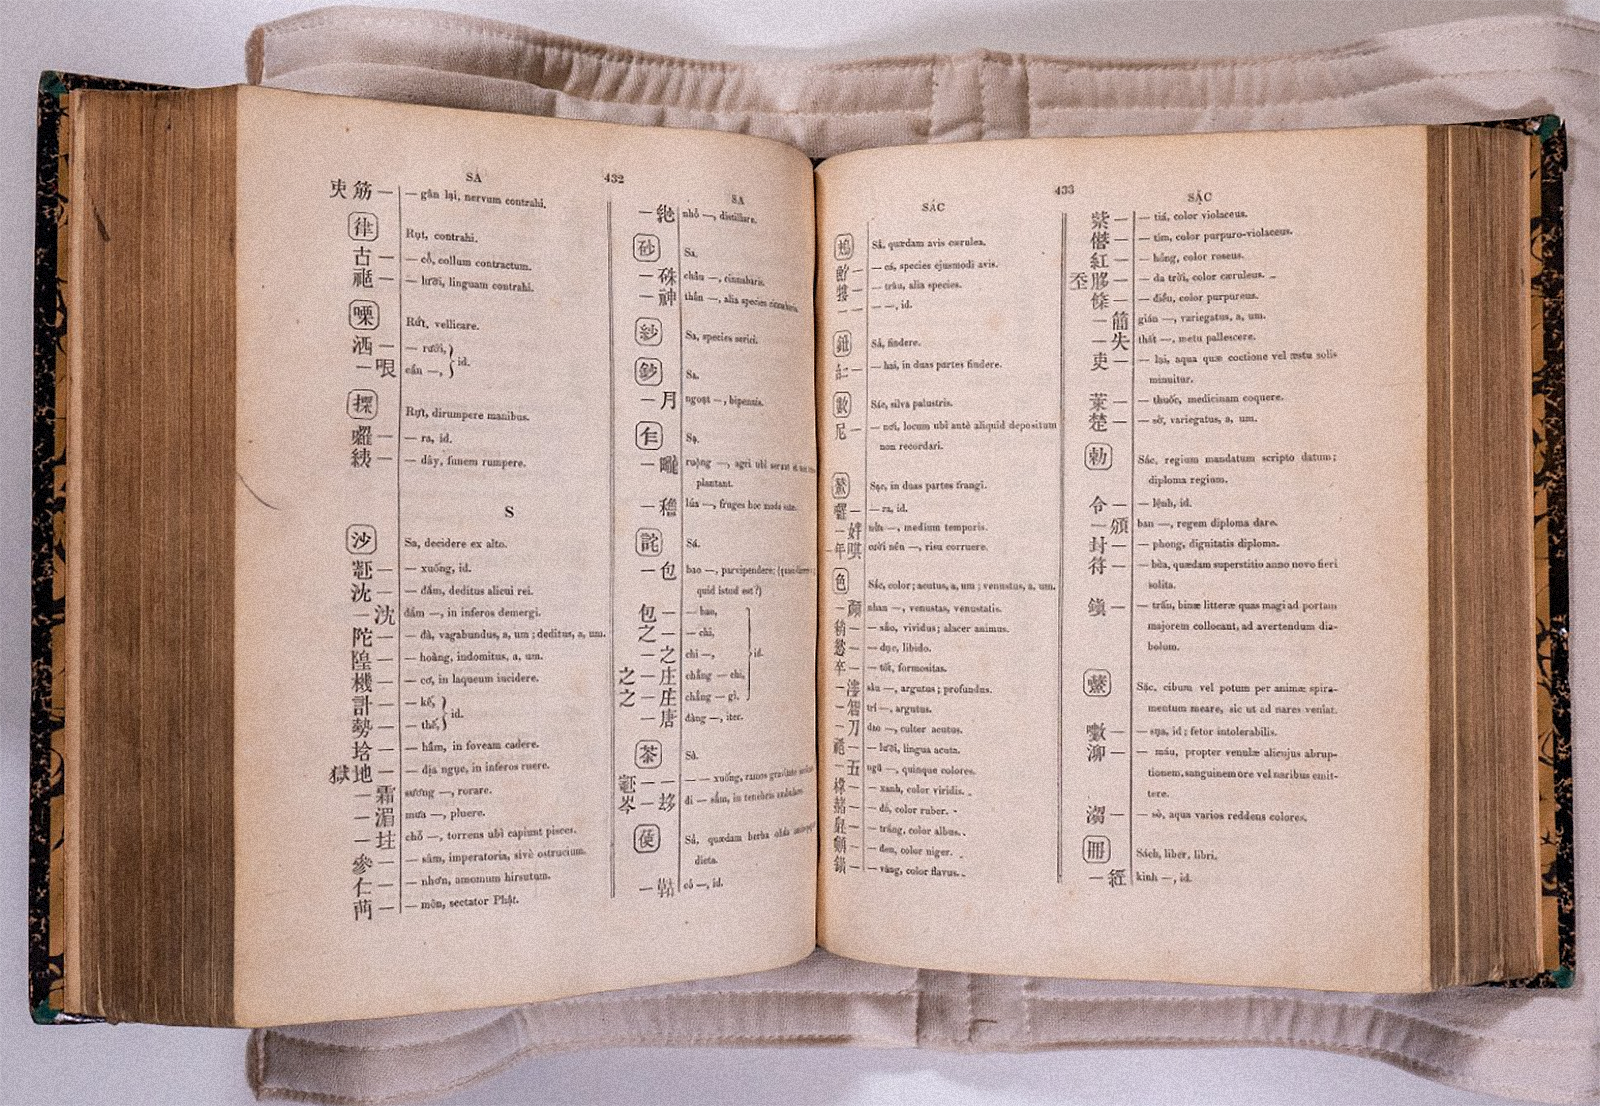 SA
432
筋 — — gân lại, nervum contrahi.
Rụt, contrahi.
古 — — cổ, collum contractum.
— lưỡi, linguam contrahi.
Rứt, vellicare.
洒 — — rưới,
— 哏 cắn —, } id.
Rựt, dirumpere manibus.
— ra, id.
— dây, funem rumpere.
S
沙 Sa, decidere ex alto.
— xuống, id.
沈 — — đắm, deditus alicui rei.
— 沈 đắm —, in inferos demergi.
陀 — — đà, vagabundus, a, um ; deditus, a, um.
隍 — — hoàng, indomitus, a, um.
機 — — cơ, in laqueum incidere.
計 — — kế,
勢 — — thế, } id.
— hầm, in foveam cadere.
獄地 — — địa ngục, in inferos ruere.
— 霜 sương —, rorare.
— 湄 mưa —, pluere.
chỗ —, torrens ubi capiunt pisces.
參 — — sâm, imperatoria, sivè ostrucium.
仁 — — nhơn, amomum hirsutum.
— môn, sectator Phật.
SA
nhỏ —, distillare.
砂 Sa.
— 硃 châu —, cinnabaris.
— 神 thần —, alia species cinnabaris.
紗 Sa, species serici.
鈔 Sa.
— 月 ngoạt —, bipennis.
乍 Sạ.
ruộng —, agri ubi serunt et non
plantant.
— 穭 lúa —, fruges hoc modo satæ.
詫 Sá.
— 包 bao —, parvipendere; (quasi diceres;
quid istud est?)
包 — — bao,
之 — — chi,
— 之 chi —,
之 — 庄 chẳng — chi,
之 — 庄 chẳng — gì. } id.
— 唐 đàng —, iter.
茶 Sà.
— — xuống, ramos gravitate
岑 — di — sầm, in tenebris ambulare.
Sả, quædam herba olida
dicta.
cỏ —, id.
SÁC
433
Sả, quædam avis cærulea.
— cá, species ejusmodi avis.
— trâu, alia species.
— — —, id.
Sả, findere.
— hai, in duas partes findere.
Sác, silva palustris.
尼 — — nơi, locum ubi antè aliquid depositum
non recordari.
Sạc, in duas partes frangi.
— ra, id.
nửa —, medium temporis.
cười nên —, risu corruere.
色 Sắc, color ; acutus, a, um ; venustus, a, um.
— 顏 nhan —, venustas, venustatis.
— sảo, vividus ; alacer animus.
慾 — — dục, libido.
卒 — — tốt, formositas.
sâu —, argutus ; profundus.
— 智 trí —, argutus.
— 刀 dao —, culter acutus.
— lưỡi, lingua acuta.
— 五 ngũ —, quinque colores.
— xanh, color viridis.
— đỏ, color ruber.
— trắng, color albus.
— đen, color niger.
— vàng, color flavus.
SẶC
紫 — — tía, color violaceus.
僭 — — tím, color purpuro-violaceus.
紅 — — hồng, color roseus.
— da trời, color cæruleus.
條 — — điều, color purpureus.
— 簡 gián —, variegatus, a, um.
— 失 thất —, metu pallescere.
吏 — — lại, aqua quæ coctione vel æstu solis
minuitur.
— thuốc, medicinam coquere.
楚 — — sở, variegatus, a, um.
勅 Sắc, regium mandatum scripto datum;
diploma regium.
令 — — lệnh, id.
— 頒 ban —, regem diploma dare.
封 — — phong, dignitatis diploma.
符 — — bùa, quædam superstitio anno novo fieri
solita.
鎮 — — trấn, binæ litteræ quas magi ad portam
majorem collocant, ad avertendum dia-
bolum.
Sặc, cibum vel potum per animæ spira-
mentum meare, sic ut ad nares veniat.
— sụa, id ; fetor intolerabilis.
— máu, propter venulæ alicujus abrup-
tionem, sanguinem ore vel naribus emit-
tere.
— sở, aqua varios reddens colores.
冊 Sách, liber, libri.
— 經 kinh —, id.